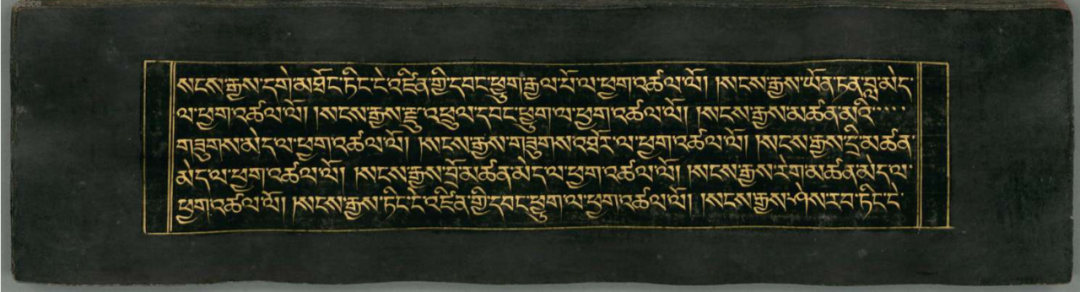 སངས་རྒྱས་དགེ་མཐོང་ཏིང་ངེ་འཛིན་གྱི་དབང་ཕྱུག་རྒྱལ་པོ་ལ་ཕྱག་འཚལ་ལོ། །སངས་རྒྱས་ཡོན་ཏན་བླ་མེད་
ལ་ཕྱག་འཚལ་ལོ། །སངས་རྒྱས་རྫུ་འཕྲུལ་དབང་ཕྱུག་ལ་ཕྱག་འཚལ་ལོ། །སངས་རྒྱས་མཚན་མའི་····
གཟུགས་མེད་ལ་ཕྱག་འཚལ་ལོ། །སངས་རྒྱས་གཟུགས་འཐོར་ལ་ཕྱག་འཚལ་ལོ། །སངས་རྒྱས་དྲི་མཚན་
མེད་ལ་ཕྱག་འཚལ་ལོ། །སངས་རྒྱས་བྲོ་མཚན་མེད་ལ་ཕྱག་འཚལ་ལོ། །སངས་རྒྱས་རེག་མཚན་མེད་ལ་
ཕྱག་འཚལ་ལོ། །སངས་རྒྱས་ཏིང་ངེ་འཛིན་གྱི་དབང་ཕྱུག་ལ་ཕྱག་འཚལ་ལོ། །སངས་རྒྱས་ཤེས་རབ་ཏིང་ངེ་